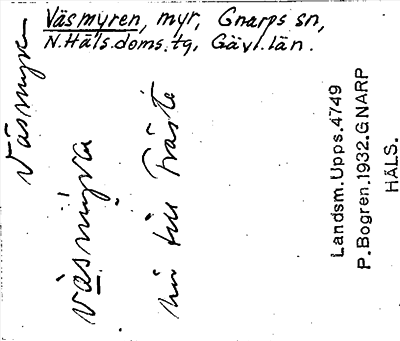 Väsmyren, myr, Gnarps sn,
N.Häls.doms.tg, Gävl.län.
Väsmyra
hör till Träste
Landsm.Upps.4749
P.Bogren.1932.GNARP
HÄLS.